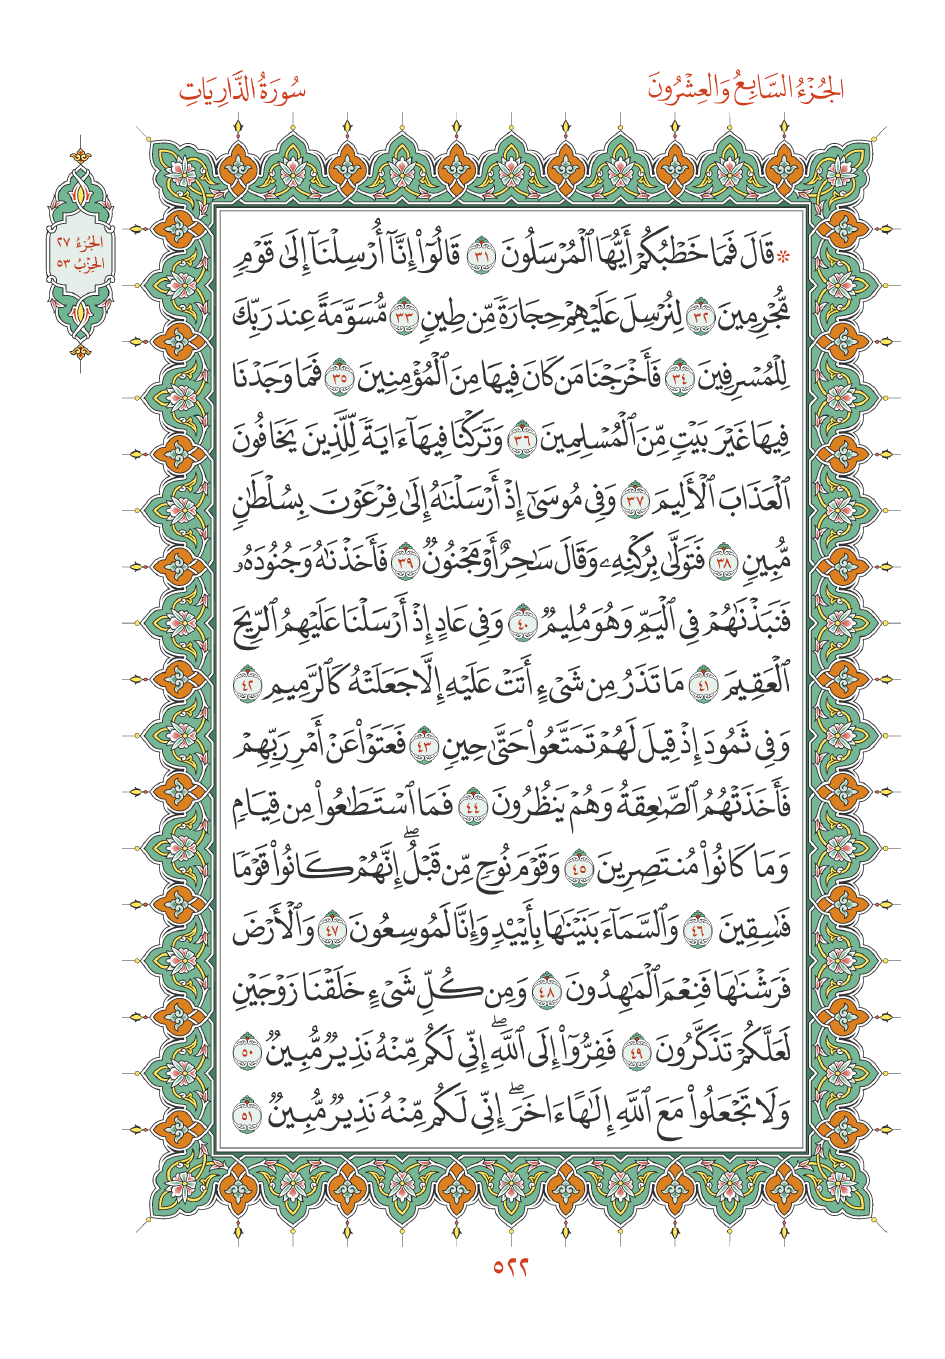 الجُزْءُ السَّابِعُ وَالعِشْرُونَ
سُورَةُ الذَّارِيَاتِ
الجُزءُ ٢٧
الحِزْبُ ٥٣
۞ قَالَ فَمَا خَطْبُكُمْ أَيُّهَا ٱلْمُرْسَلُونَ ٣١ قَالُوٓا۟ إِنَّآ أُرْسِلْنَآ إِلَىٰ قَوْمٍ
مُّجْرِمِينَ ٣٢ لِنُرْسِلَ عَلَيْهِمْ حِجَارَةً مِّن طِينٍ ٣٣ مُّسَوَّمَةً عِندَ رَبِّكَ
لِلْمُسْرِفِينَ ٣٤ فَأَخْرَجْنَا مَن كَانَ فِيهَا مِنَ ٱلْمُؤْمِنِينَ ٣٥ فَمَا وَجَدْنَا
فِيهَا غَيْرَ بَيْتٍ مِّنَ ٱلْمُسْلِمِينَ ٣٦ وَتَرَكْنَا فِيهَآ ءَايَةً لِّلَّذِينَ يَخَافُونَ
ٱلْعَذَابَ ٱلْأَلِيمَ ٣٧ وَفِى مُوسَىٰٓ إِذْ أَرْسَلْنَٰهُ إِلَىٰ فِرْعَوْنَ بِسُلْطَٰنٍ
مُّبِينٍ ٣٨ فَتَوَلَّىٰ بِرُكْنِهِۦ وَقَالَ سَٰحِرٌ أَوْ مَجْنُونٌ ٣٩ فَأَخَذْنَٰهُ وَجُنُودَهُۥ
فَنَبَذْنَٰهُمْ فِى ٱلْيَمِّ وَهُوَ مُلِيمٌ ٤٠ وَفِى عَادٍ إِذْ أَرْسَلْنَا عَلَيْهِمُ ٱلرِّيحَ
ٱلْعَقِيمَ ٤١ مَا تَذَرُ مِن شَىْءٍ أَتَتْ عَلَيْهِ إِلَّا جَعَلَتْهُ كَٱلرَّمِيمِ ٤٢
وَفِى ثَمُودَ إِذْ قِيلَ لَهُمْ تَمَتَّعُوا۟ حَتَّىٰ حِينٍ ٤٣ فَعَتَوْا۟ عَنْ أَمْرِ رَبِّهِمْ
فَأَخَذَتْهُمُ ٱلصَّٰعِقَةُ وَهُمْ يَنظُرُونَ ٤٤ فَمَا ٱسْتَطَٰعُوا۟ مِن قِيَامٍ
وَمَا كَانُوا۟ مُنتَصِرِينَ ٤٥ وَقَوْمَ نُوحٍ مِّن قَبْلُ ۖ إِنَّهُمْ كَانُوا۟ قَوْمًا
فَٰسِقِينَ ٤٦ وَٱلسَّمَآءَ بَنَيْنَٰهَا بِأَيْي۟دٍ وَإِنَّا لَمُوسِعُونَ ٤٧ وَٱلْأَرْضَ
فَرَشْنَٰهَا فَنِعْمَ ٱلْمَٰهِدُونَ ٤٨ وَمِن كُلِّ شَىْءٍ خَلَقْنَا زَوْجَيْنِ
لَعَلَّكُمْ تَذَكَّرُونَ ٤٩ فَفِرُّوٓا۟ إِلَى ٱللَّهِ ۖ إِنِّى لَكُم مِّنْهُ نَذِيرٌ مُّبِينٌ ٥٠
وَلَا تَجْعَلُوا۟ مَعَ ٱللَّهِ إِلَٰهًا ءَاخَرَ ۖ إِنِّى لَكُم مِّنْهُ نَذِيرٌ مُّبِينٌ ٥١
٥٢٢